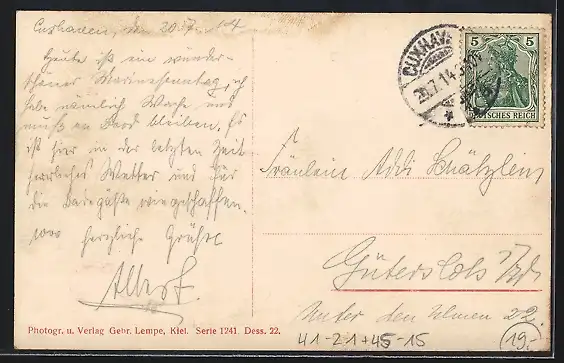 Cuxhaven, den 20.7.14
Heute ist ein wunder-
schöner Marinesonntag, ich
habe nämlich Wache und
muß an Bord bleiben. Es
ist hier in der letzten Zeit
herrliches Wetter und für
die Badegäste wie geschaffen.
1000 herzliche Grüße
Albert.
CUXHAVEN
26.7.14
5 5
DEUTSCHES REICH
Fräulein Addi
Gütersloh i/W
Unter den Ulmen 22.
41-21+45-15
19.-
Photogr. u. Verlag Gebr. Lempe, Kiel. Serie 1241. Dess. 22.